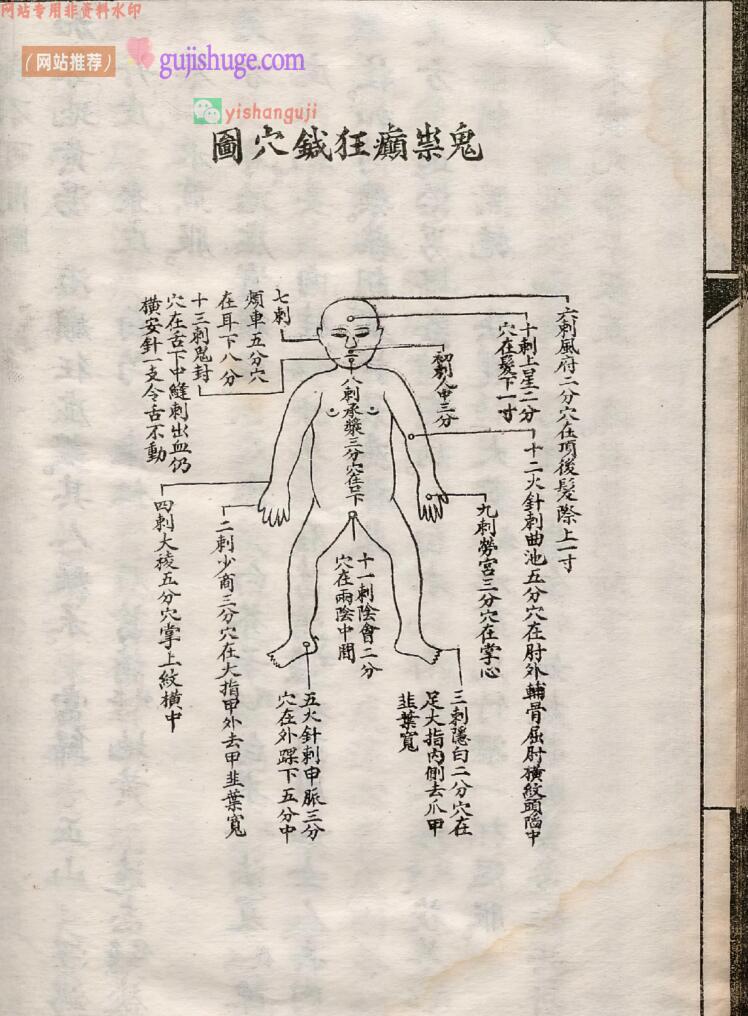 网站专用非资料水印
（网站推荐）
gujishuge.com
yishanguji
鬼祟癲狂鍼穴圖
六刺風府二分穴在項後髮際上一寸
十刺上星二分
穴在髮下一寸
初刺人中三分
十二火針刺曲池五分穴在肘外輔骨屈肘橫紋頭陷中
九刺勞宮三分穴在掌心
三刺隱白二分穴在
足大指內側去爪甲
韭葉寬
八刺承漿三分穴在口下
十一刺陰會二分
穴在兩陰中間
五火針刺申脈三分
穴在外踝下五分中
七刺
頰車五分穴
在耳下八分
十三刺鬼封
穴在舌下中縫刺出血仍
橫安針一支令舌不動
二刺少商三分穴在大指甲外去甲韭葉寬
四刺大稜五分穴掌上紋橫中